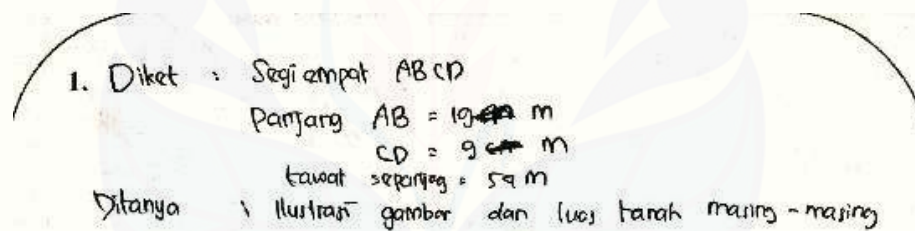 1. Diket : Segi empat ABCD
Panjang AB = 19 m
CD = 9 m
kawat sepanjang = 59 m
Ditanya : Ilustrasi gambar dan luas tanah masing-masing